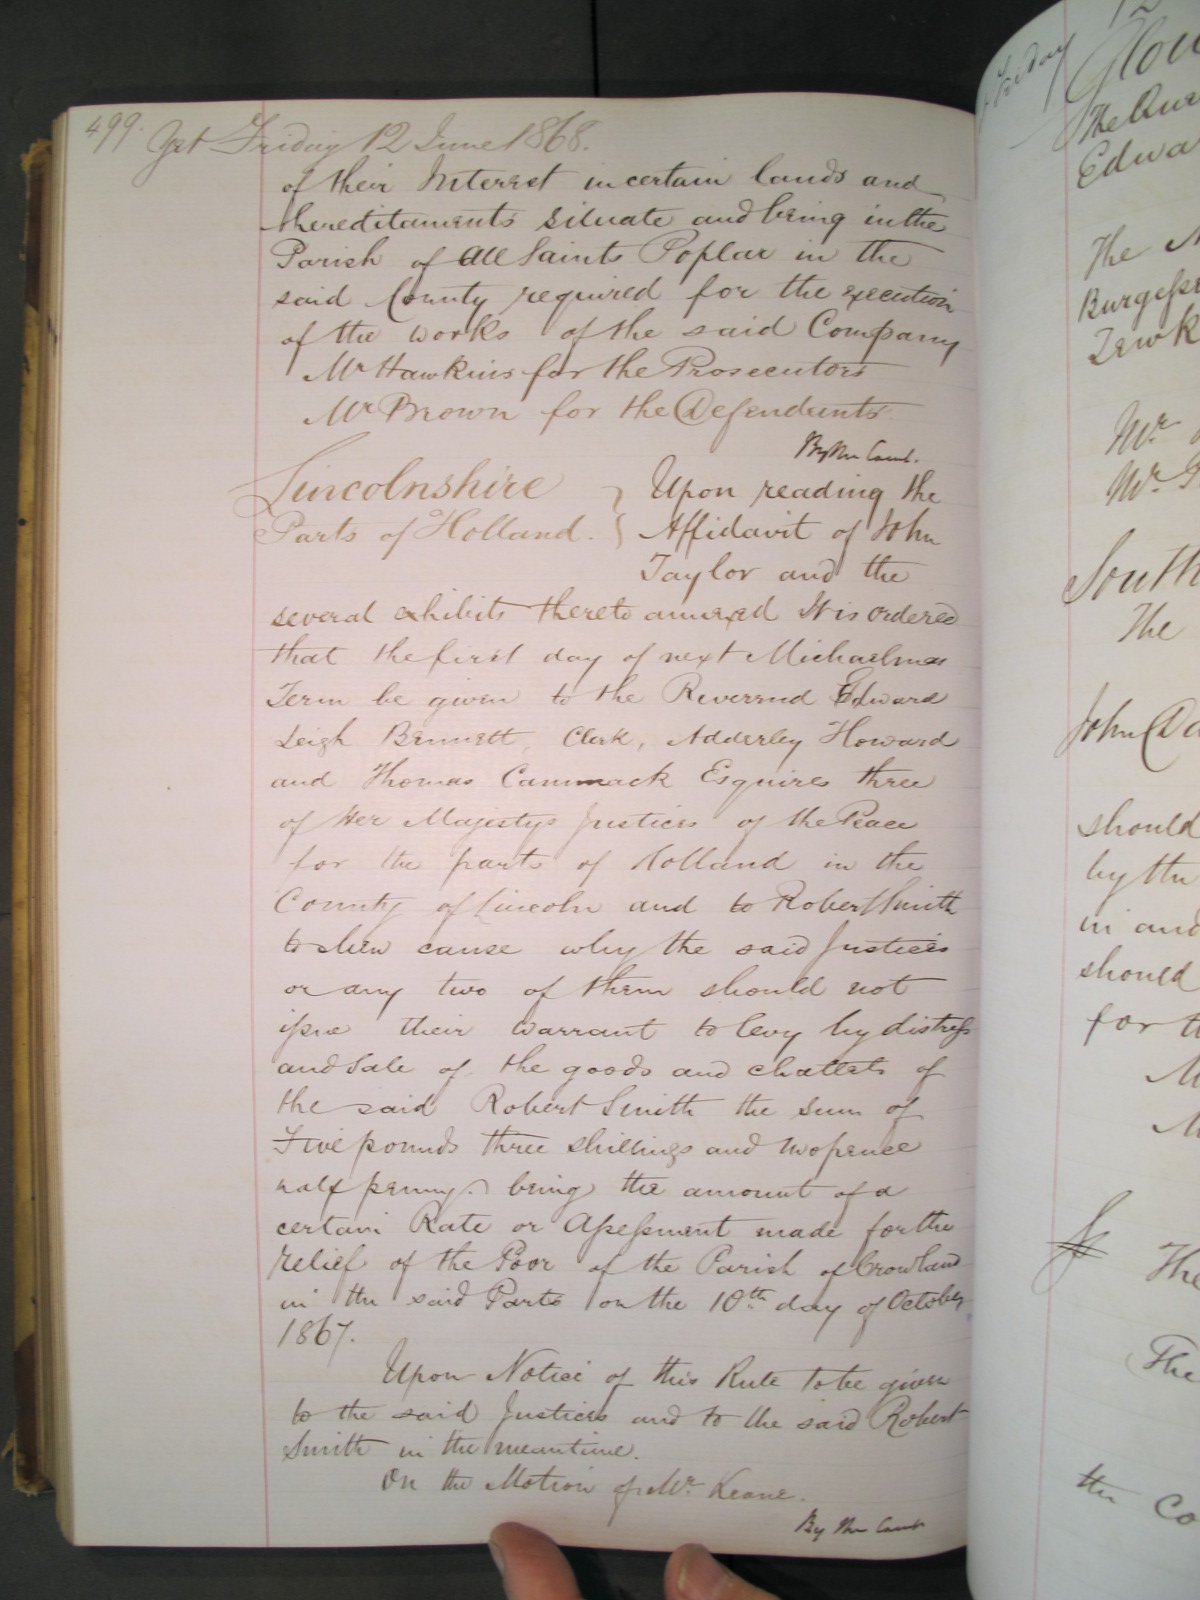 499. Yet Friday 12 June 1868.
of their Interest in certain lands and
hereditaments situate and being in the
Parish of All Saints Poplar in the
said County required for the execution
of the works of the said Company
Mr Hawkins for the Prosecutors
Mr Brown for the Defendants.
By the Court.
Lincolnshire } Upon reading the
Parts of Holland. } Affidavit of John
Taylor and the
several exhibits thereto annexed It is ordered
that the first day of next Michaelmas
Term be given to the Reverend Edward
Leigh Bennett, Clerk, Adderley Howard
and Thomas Cammack Esquires three
of Her Majestys Justices of the Peace
for the parts of Holland in the
County of Lincoln and to Robert Smith
to shew cause why the said Justices
or any two of them should not
issue their warrant to levy by distress
and sale of the goods and chattels of
the said Robert Smith the sum of
Five pounds three shillings and twopence
half penny. being the amount of a
certain Rate or Assessment made for the
relief of the Poor of the Parish of Crowland
in the said Parts on the 10th day of October
1867.
Upon Notice of this Rule to be given
to the said Justices and to the said Robert
Smith in the meantime.
On the Motion of Mr. Keane.
By the Court
12
Friday
The
Edwa
The
Burgess
Tewk
Mr
Mr.
South
The
John
should
by the
in and
should
for t
The
The
the Co